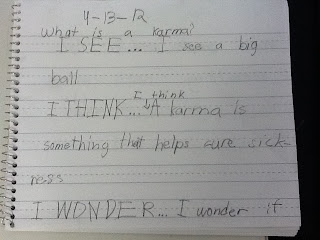 4-13-12
What is a karma?
I SEE... I see a big
ball
I THINK... I think A karma is
something that helps cure sick-
ness
I WONDER... I wonder if